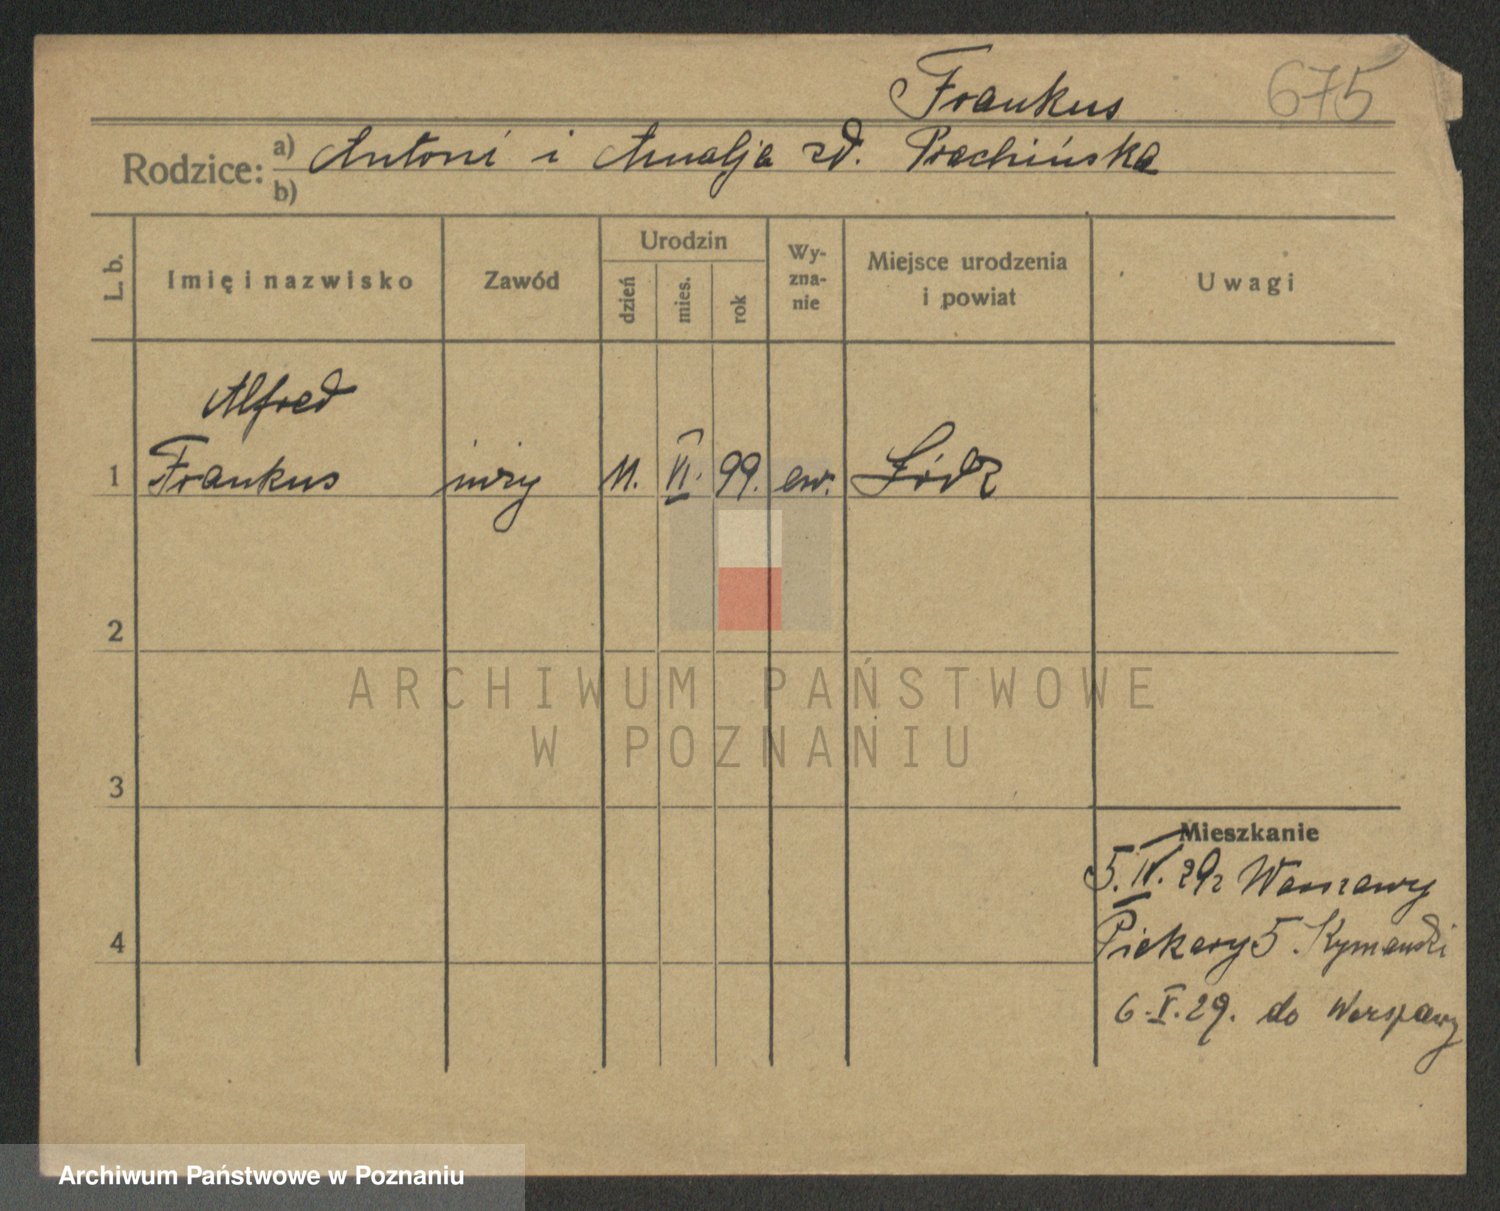 Frankus 675
Rodzice: a) Antoni i Amalja zd. Prachińska
b)
L. b. Imię i nazwisko Zawód Urodzin dzień mies. rok Wyzna-nie Miejsce urodzenia i powiat Uwagi
Alfred
1 Frankus inży 11. VI. 99. ew. Łódz
2
ARCHIWUM PAŃSTWOWE
W POZNANIU
3
Mieszkanie
5.IV.29 z Warszawy
4 Piekary 5.
6.V.29. do Warszawy
Archiwum Państwowe w Poznaniu